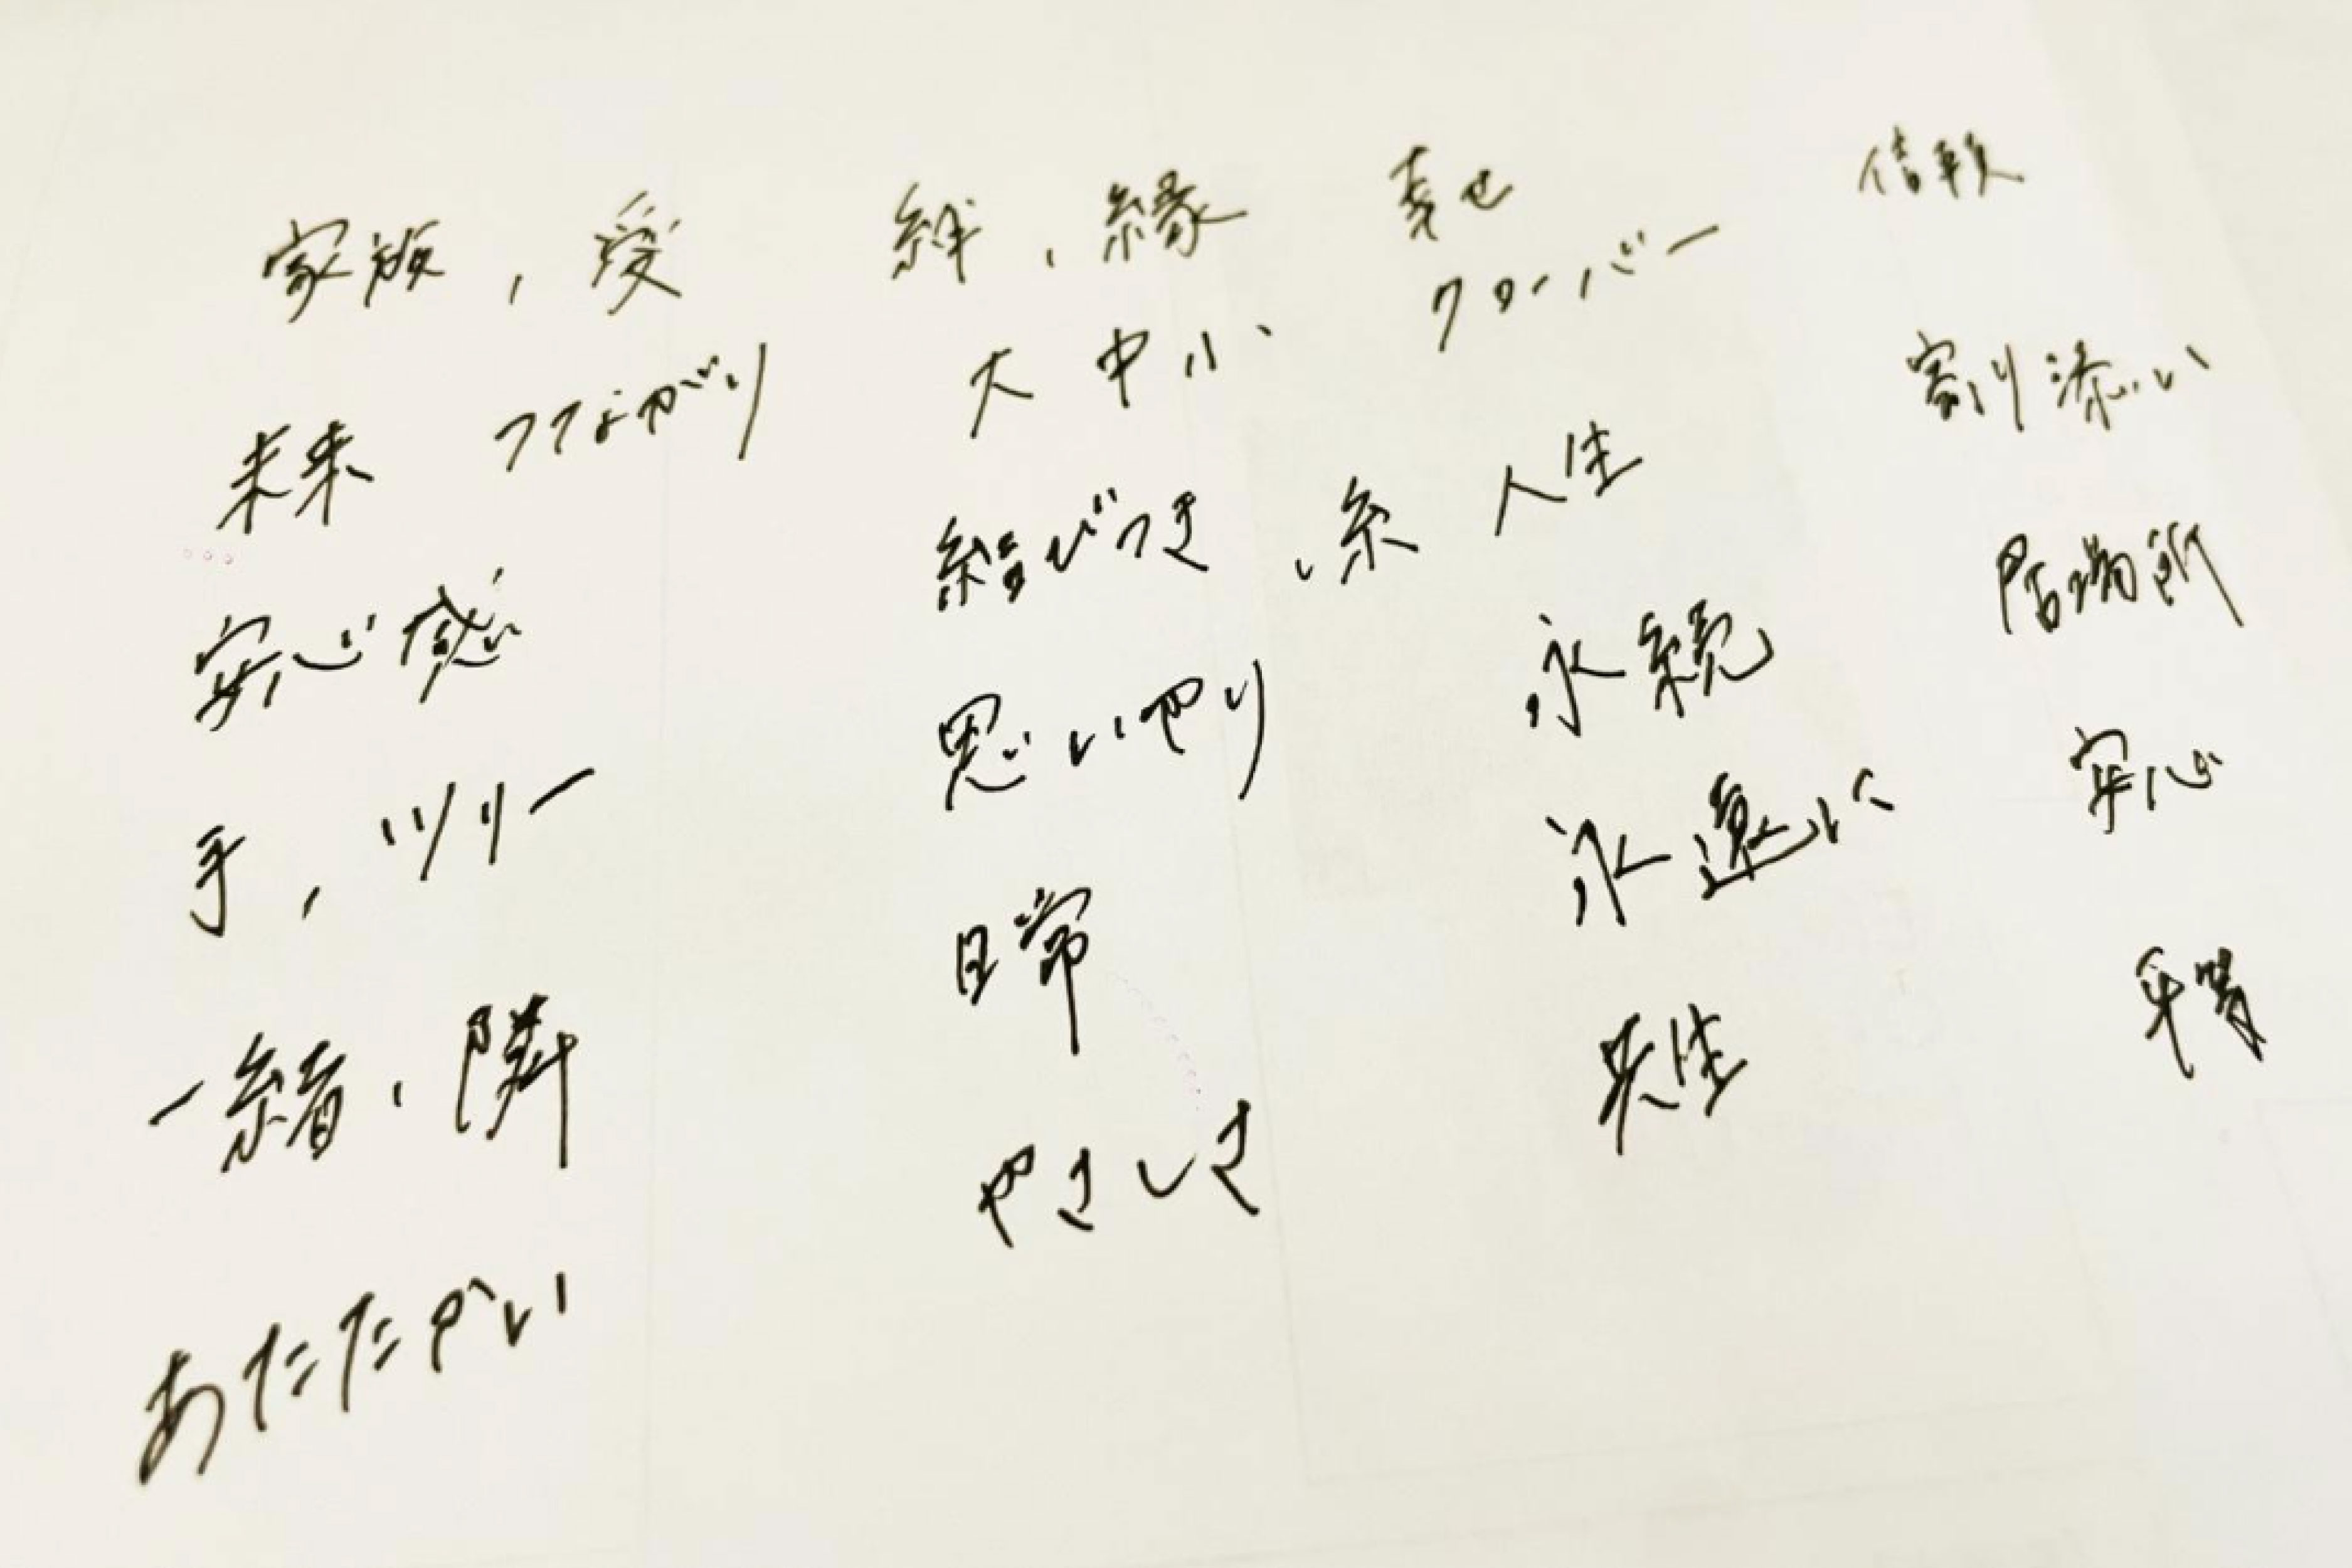 家族, 愛
未来 つながり
安心感
手, ツリー
一緒, 隣
あたたかい
絆, 縁
大中小
結びつき, 糸
思いやり
日常
やさしさ
幸せ
クローバー
人生
永続
永遠に
共生
信頼
寄り添い
居場所
安心